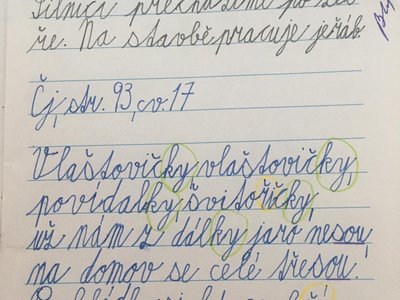 Silnici přecházíme po zeb-
ře. Na stavbě pracuje jeřáb.
Čj, str. 93, cv. 17
Vlaštovičky, vlaštovičky,
povídalky, švitořičky,
už nám z dálky jaro nesou,
na domov se celé třesou.